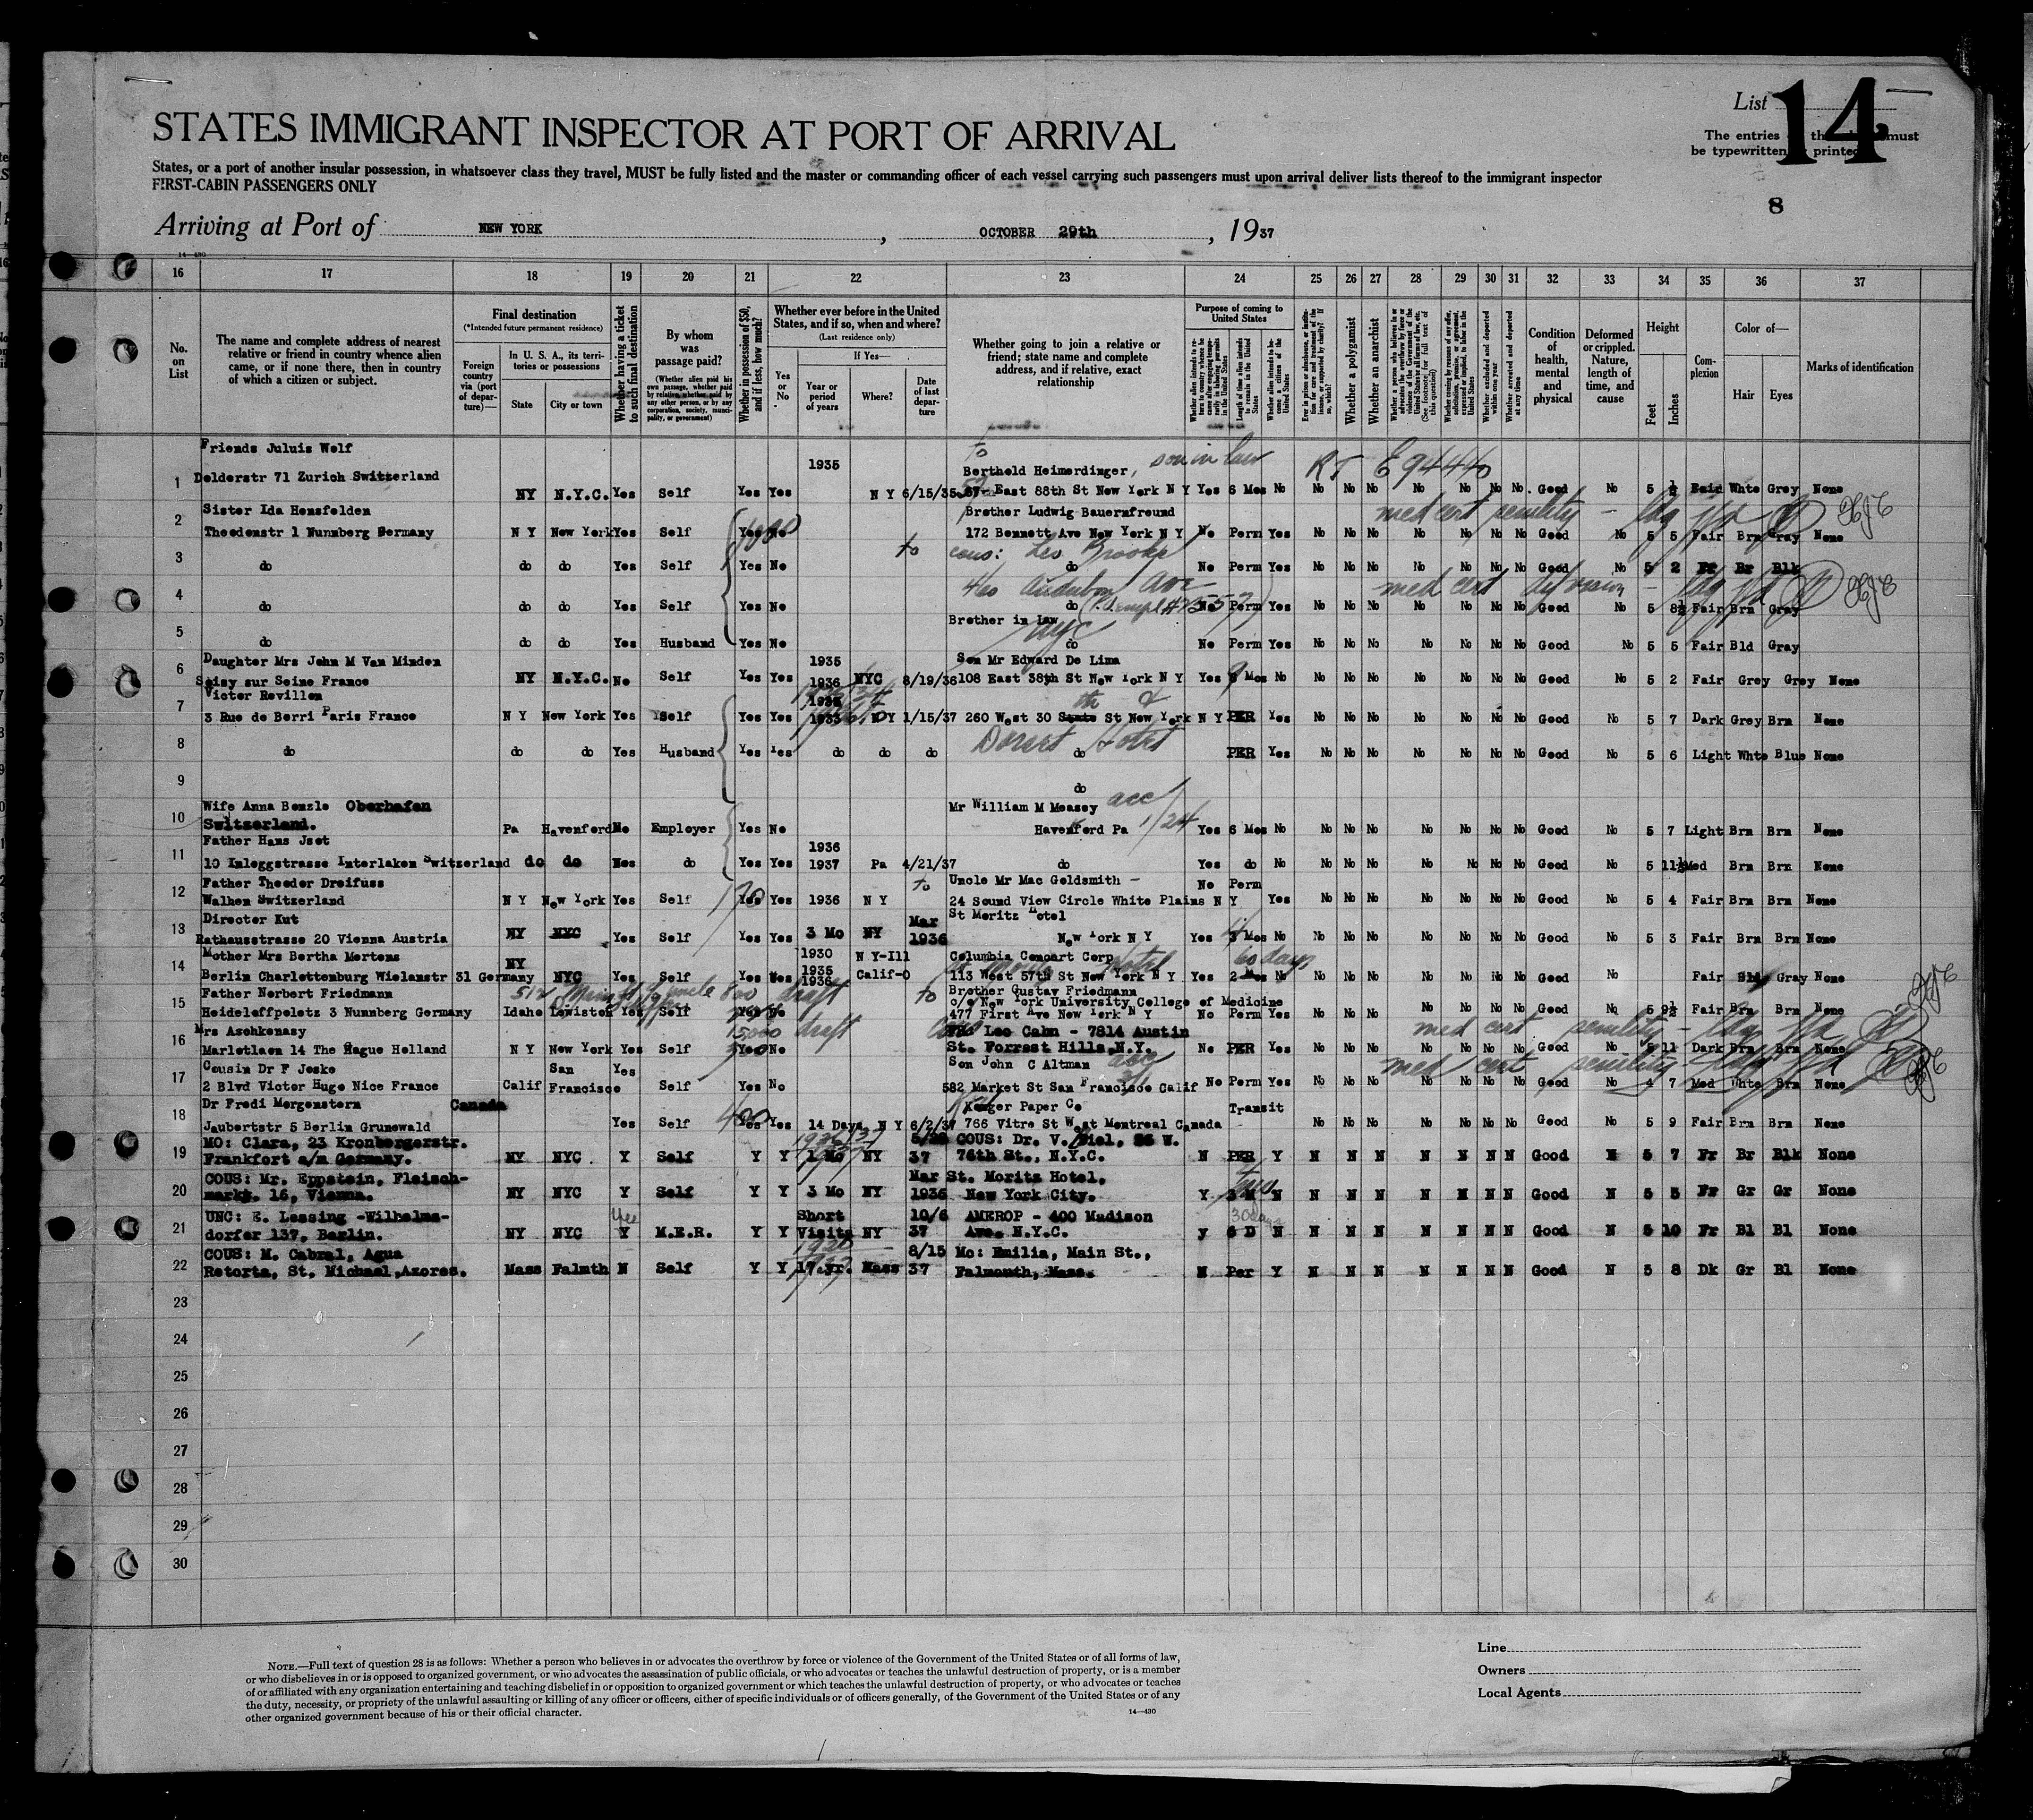 List 14
The entries must
be typewritten printed
STATES IMMIGRANT INSPECTOR AT PORT OF ARRIVAL
States, or a port of another insular possession, in whatsoever class they travel, MUST be fully listed and the master or commanding officer of each vessel carrying such passengers must upon arrival deliver lists thereof to the immigrant inspector
FIRST-CABIN PASSENGERS ONLY
8
Arriving at Port of NEW YORK, OCTOBER 29th, 1937
14—430
16 17 18 19 20 21 22 23 24 25 26 27 28 29 30 31 32 33 34 35 36 37
No. on List
The name and complete address of nearest relative or friend in country whence alien came, or if none there, then in country of which a citizen or subject.
Final destination
(*Intended future permanent residence)
Foreign country via (port of departure)—
In U. S. A., its territories or possessions
State
City or town
Whether having a ticket to such final destination
By whom was passage paid?
(Whether alien paid his own passage, whether paid by relative, whether paid by any other person, or by any corporation, society, municipality, or government)
Whether in possession of $50, and if less, how much?
Whether ever before in the United States, and if so, when and where?
(Last residence only)
Yes or No
If Yes—
Year or period of years
Where?
Date of last departure
Whether going to join a relative or friend; state name and complete address, and if relative, exact relationship
Purpose of coming to United States
Length of time alien intends to remain in the United States
Whether alien intends to become a citizen of the United States
Whether a polygamist
Whether an anarchist
Whether excluded and deported within one year
Whether arrested and deported at any time
Condition of health, mental and physical
Deformed or crippled. Nature, length of time, and cause
Height
Feet
Inches
Complexion
Color of—
Hair
Eyes
Marks of identification
Friends Juluis Wolf 1935 to Berthold Heimerdinger, son in law RT E94440
1 Dolderstr 71 Zurich Switzerland NY N.Y.C. Yes Self Yes Yes N Y 6/15/35 East 88th St New York N Y Yes 6 Mos No No No No No No No No Good No 5 Whte Grey None
Sister Ida Hensfelden Brother Ludwig Bauernfreund med cert senility
2 Theodenstr 1 Nurnberg Germany N Y New York Yes Self Yes No 172 Bennett Ave New York N Y No Perm Yes No No No No No No No Good No 5 5 Fair Brn Gray None
to cous: Leo Brooke
3 do do do Yes Self Yes No do No Perm Yes No No No No No No No Good No 5 2 Fr Br Blk
460 Audubon Ave med cert
4 do do do Yes Self Yes No do No Perm Yes No No No No No No No Good No 5 8½ Fair Brn Gray
Brother in Law NYC
5 do do do Yes Husband Yes No do No Perm Yes No No No No No No No Good No 5 5 Fair Bld Gray
Daughter Mrs John M Van Minden 1935 Son Mr Edward De Lima
6 Soisy sur Seine France NY N.Y.C. No Self Yes Yes 1936 NYC 8/19/36 108 East 38th St New York N Y Yes Mos No No No No No No No No Good No 5 2 Fair Grey Grey None
Victor Revillon
7 3 Rue de Berri Paris France N Y New York Yes Self Yes Yes 1933 N Y 1/15/37 260 West 30 th St New York N Y PER Yes No No No No No No No Good No 5 7 Dark Grey Brn None
Dorset Hotel
8 do do do Yes Husband Yes Yes do do do do PER Yes No No No No No No No Good No 5 6 Light Whte Blue None
9 do
Wife Anna Benzle Oberhafen Mr William M Measey acc 1/24
10 Switzerland. Pa Havenford No Employer Yes No Havenford Pa Yes 6 Mos No No No No No No No No Good No 5 7 Light Brn Brn None
Father Hans Jset 1936
11 10 Inleggstrasse Interlaken Switzerland do do do Yes Yes 1937 Pa 4/21/37 do Yes do No No No No No No No No Good No 5 11½ Med Brn Brn None
Father Theodor Dreifuss to Uncle Mr Mac Goldsmith - No Perm
12 Walhen Switzerland N Y New York Yes Self Yes Yes 1936 N Y 24 Sound View Circle White Plains N Y Yes No No No No No No No Good No 5 4 Fair Brn Brn None
Director Kut Mar St Moritz Hotel
13 Rathausstrasse 20 Vienna Austria NY NYC Yes Self Yes Yes 3 Mo NY 1936 New York N Y Yes Mos No No No No No No No No Good No 5 3 Fair Brn Brn None
Mother Mrs Bertha Mertens NY 1930 N Y-Ill Columbia Concert Corp Hotel 60 days
14 Berlin Charlottenburg Wielanstr 31 Germany NYC Yes Self Yes Yes 1935 1936 Calif-O 113 West 57th St New York N Y Yes 2 Mos No No No No No No No No Good No Fair Gray None
Father Norbert Friedmann 512 Main St uncle 800 draft to Brother Gustav Friedmann
c/o New York University College of Medicine
15 Heideleffpelatz 3 Nurnberg Germany Idaho Lewiston Yes Self No 477 First Ave New York N Y No Perm Yes No No No No No No No Good No 5 9½ Fair Brn Brn None
Mrs Aschkenasy 15000 draft Leo Calm - 7814 Austin med cert senility
16 Marletlaen 14 The Hague Holland N Y New York Yes Self Yes No St. Forrest Hills, N.Y. No PER Yes No No No No No No No Good No 5 11 Dark Brn Brn None
Cousin Dr F Jeske San Yes Son John C Altman med cert senility
17 2 Blvd Victor Hugo Nice France Calif Francisco Self Yes No 582 Market St San Francisco Calif No Perm Yes No No No No No No No Good No 4 7 Med Whte Brn None
Dr Fredi Morgenstern Canada Kruger Paper Co Transit
18 Jaubertstr 5 Berlin Grunewald Yes Self 400 Yes Yes 14 Days N Y 6/2/37 766 Vitre St West Montreal Canada No No No No No No No Good No 5 9 Fair Brn Brn None
MO: Clara, 23 Kronbergerstr. COUS: Dr. V. 56 W.
19 Frankfort a/m Germany. NY NYC Y Self Y Y 1 Mo NY 37 76th St., N.Y.C. N PER Y N N N N N N N Good N 5 7 Fr Br Blk None
COUS: Mr. Eppstein, Fleisch- Mar St. Moritz Hotel,
20 markt. 16, Vienna. NY NYC Y Self Y Y 3 Mo NY 1936 New York City. Y N N N N N N N N Good N 5 5 Fr Gr Gr None
UNC: E. Lessing -Wilhelms- Yes Short 10/6 AMEROP - 400 Madison 30 days
21 dorfer 137, Berlin. NY NYC Y M.E.R. Y Y Visits NY 37 Ave. N.Y.C. y 6 D N N N N N N N N Good N 5 10 Fr Bl Bl None
COUS: M. Cabral, Agua 1920 8/15 Mo: Emilia, Main St.,
22 Retorta, St. Michael, Azores. Mass Falmth N Self Y Y 17 yr. Mass 37 Falmouth, Mass. N Per Y N N N N N N N Good N 5 8 Dk Gr Bl None
23
24
25
26
27
28
29
30
NOTE.—Full text of question 28 is as follows: Whether a person who believes in or advocates the overthrow by force or violence of the Government of the United States or of all forms of law,
or who disbelieves in or is opposed to organized government, or who advocates the assassination of public officials, or who advocates or teaches the unlawful destruction of property, or is a member
of or affiliated with any organization entertaining and teaching disbelief in or opposition to organized government or which teaches the unlawful destruction of property, or who advocates or teaches
the duty, necessity, or propriety of the unlawful assaulting or killing of any officer or officers, either of specific individuals or of officers generally, of the Government of the United States or of any
other organized government because of his or their official character.
14—430
Line
Owners
Local Agents